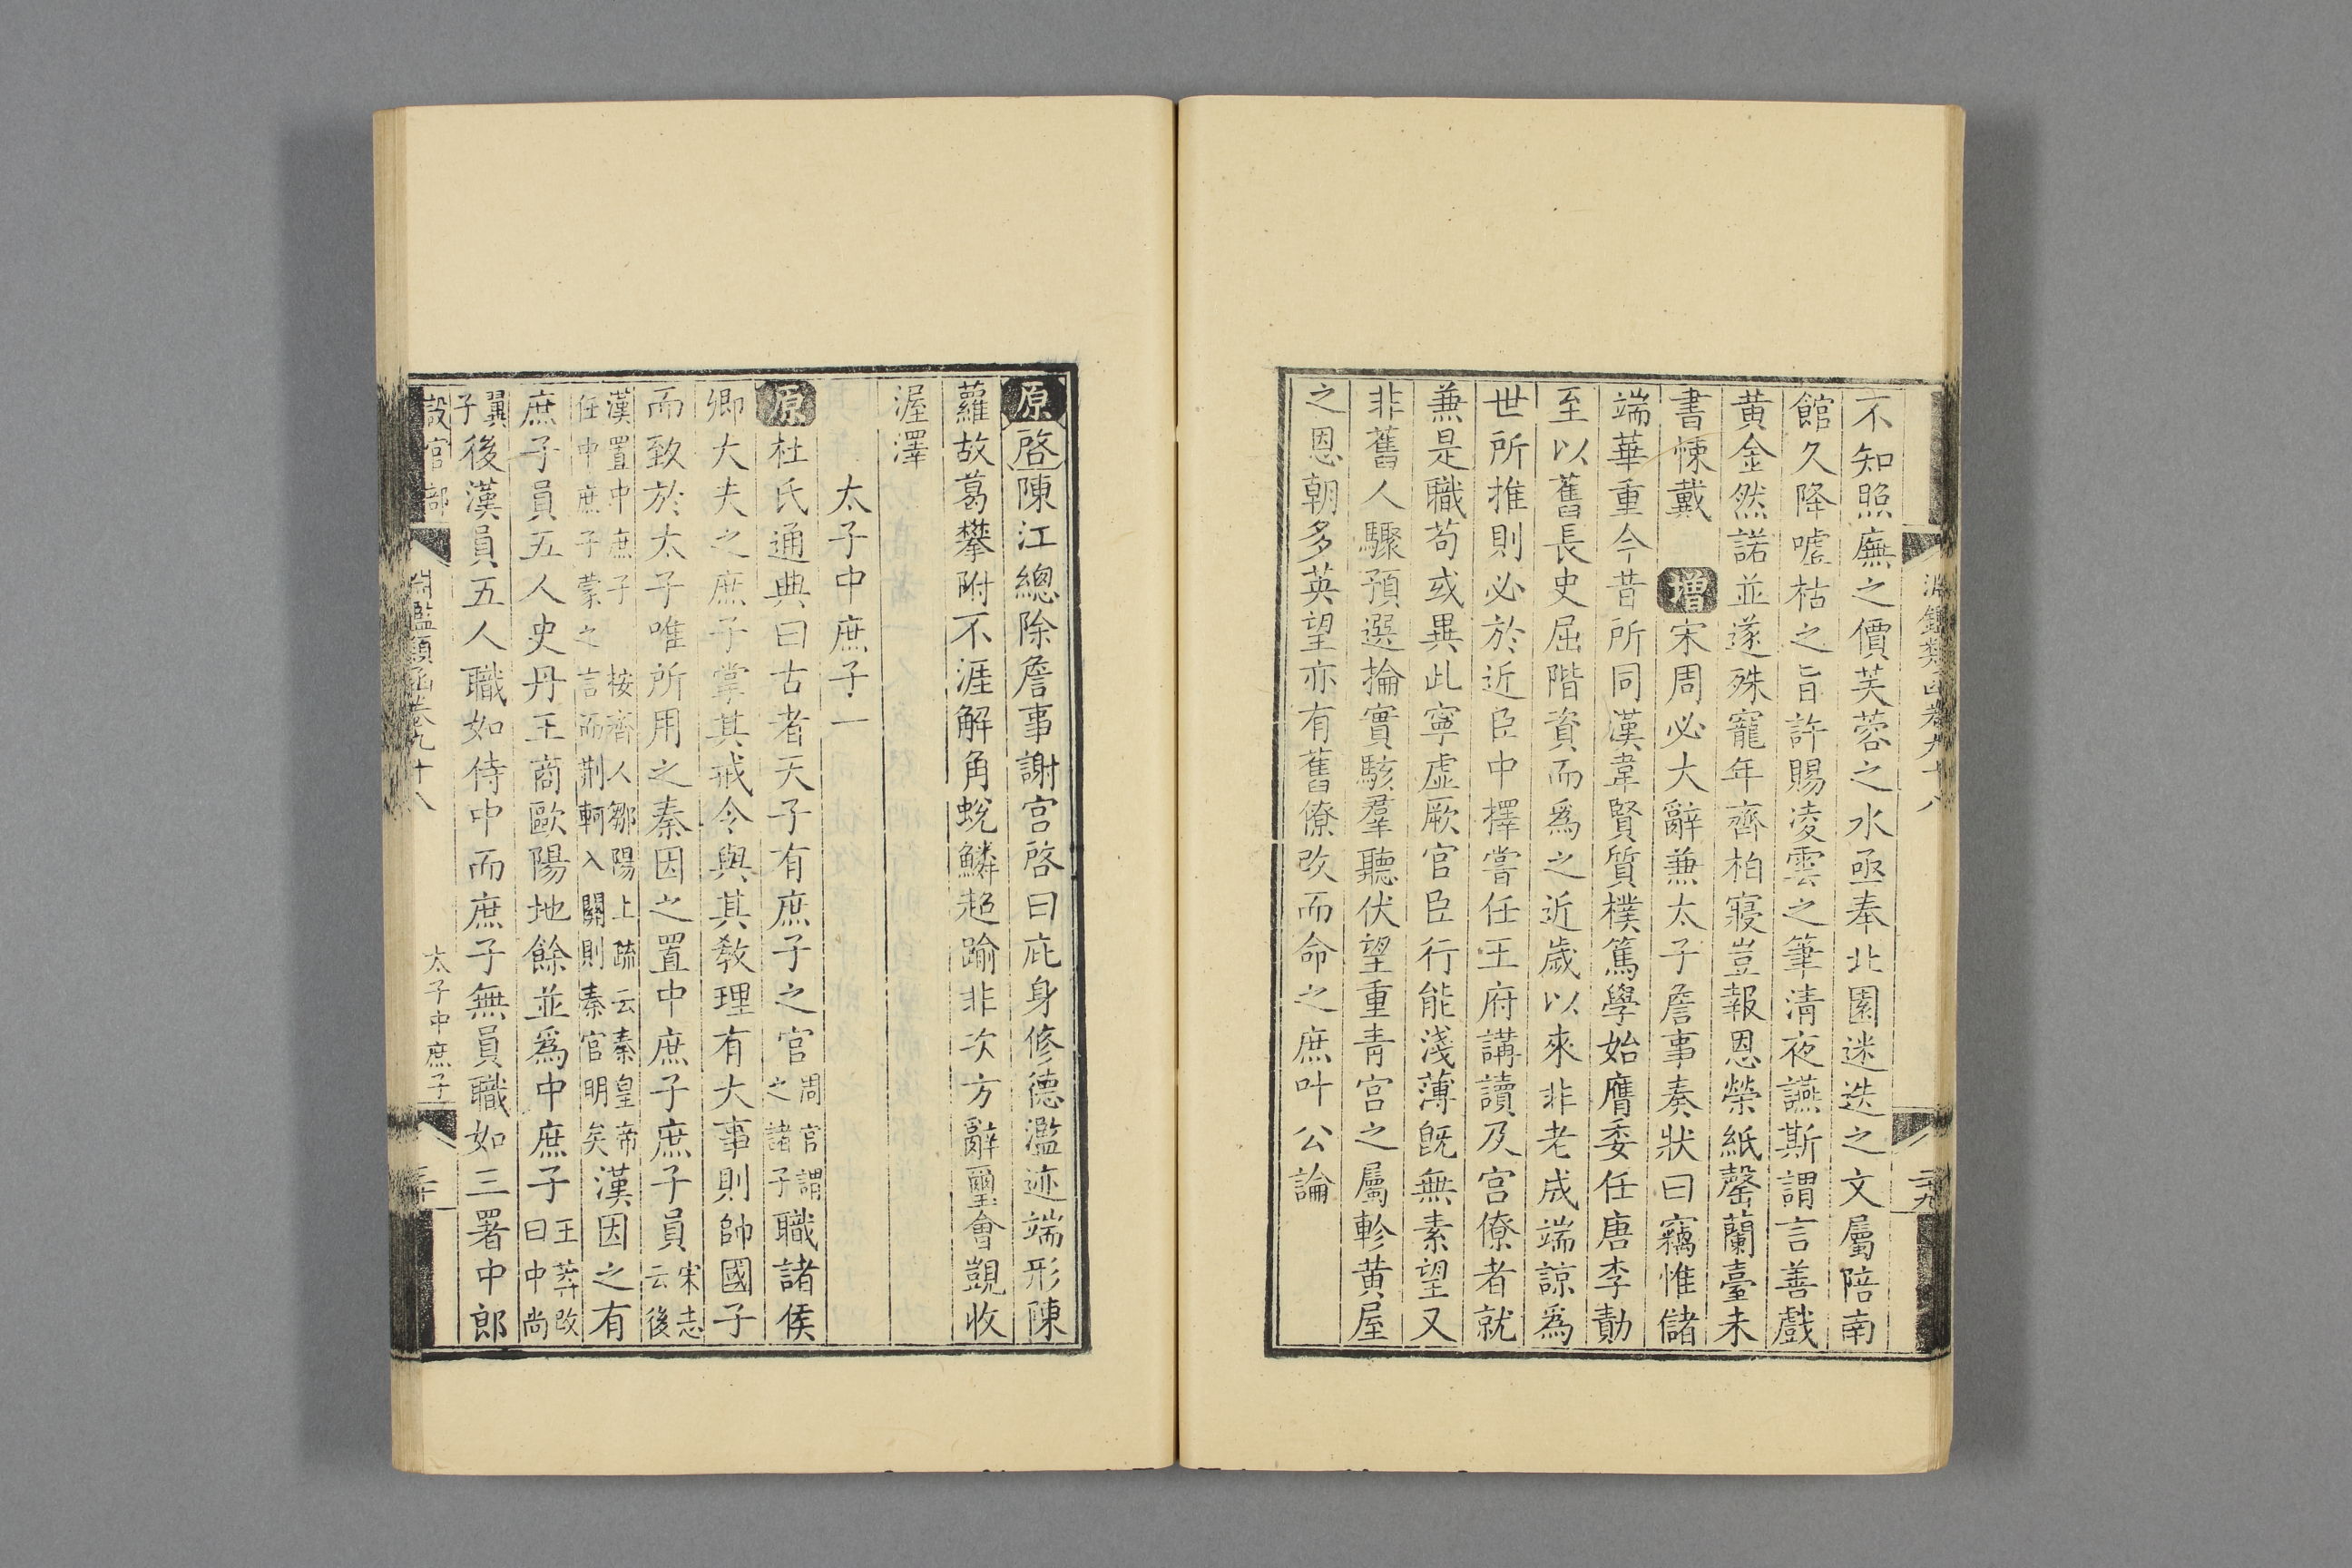 不知照廡之價芙蓉之水亟奉北園迷迭之文屬陪南
館久降噓枯之旨許賜凌雲之筆清夜讌斯謂言善戲
黃金然諾並遂殊寵年齊柏寢豈報恩榮紙罄蘭臺未
書悚戴 增宋周必大辭兼太子詹事奏狀曰竊惟儲
端華重今昔所同漢韋賢質樸篤學始膺委任唐李勣
至以舊長史屈階資而爲之近歲以來非老成端諒爲
世所推則必於近臣中擇嘗任王府講讀及宮僚者就
兼是職苟或異此寧虛厥官臣行能淺薄旣無素望又
非舊人驟預選掄實駭羣聽伏望重青宮之屬軫黃屋
之恩朝多英望亦有舊僚改而命之庶叶公論
原啓陳江總除詹事謝宮啓曰庇身修德濫迹端形陳
蘿故葛攀附不涯解角蛻鱗超踰非次方辭璽會覬收
渥澤
太子中庶子一
原杜氏通典曰古者天子有庶子之官周官謂之諸子職諸侯
卿大夫之庶子掌其戒令與其教理有大事則帥國子
而致於太子唯所用之秦因之置中庶子庶子員宋志云後
漢置中庶子 按齊人鄒陽上疏云秦皇帝任中庶子蒙之言而荆軻入關則秦官明矣漢因之有
庶子員五人史丹王商歐陽地餘並爲中庶子王莽改曰中尚
翼子後漢員五人職如侍中而庶子無員職如三署中郎
設官部 淵鑑類函卷九十八 太子中庶子 三十